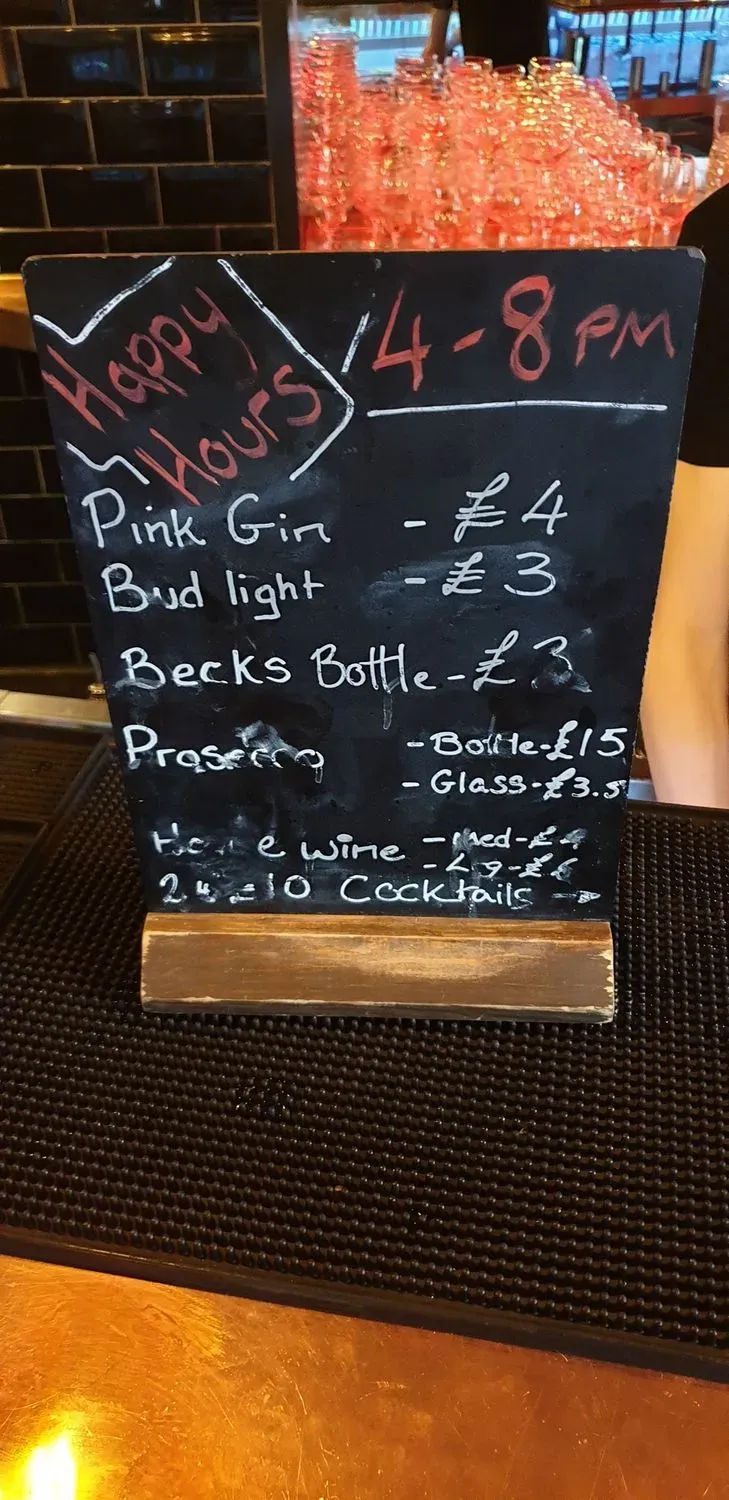 Happy
Hours
4-8 PM
Pink Gin - £4
Bud light - £3
Becks Bottle - £3
Prosecco - Bottle - £15
- Glass - £3.5
wine - Med - £
- £
Cocktails →